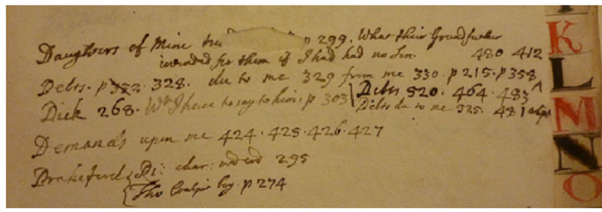 Daughters of Mine p 299. What their Grandfather
intended for them if I had had no Son. 480 412
Debts. p 322. 328. due to me 329 from me 330. p 215. p 358
Dick 268. Wt I have to say to him. p 303 Debts 520. 464. 483
Debts due to me 325. 481
Demands upon me 424. 425. 426. 427
Brakeford char: 295
Tho Coalpit boy. p 274
K
L
M
N
O